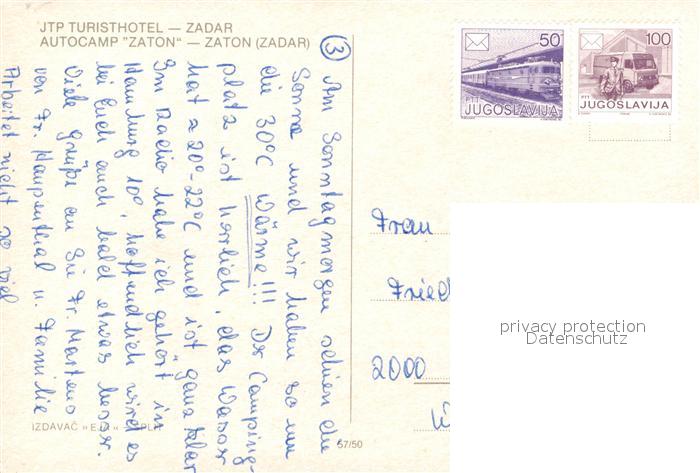 JTP TURISTHOTEL — ZADAR
AUTOCAMP "ZATON" — ZATON (ZADAR)
50
PTT
JUGOSLAVIJA
100
PTT
JUGOSLAVIJA
3
Am Sonntagmorgen schien die
Sonne und wir haben so um
die 30°C Wärme!!! Der Camping-
platz ist herrlich, das Wasser
hat ≈ 20°-22°C und ist ganz klar
Im Radio habe ich gehört in
Hamburg 10°, hoffendlich wird es
bei Euch auch bald etwas besser.
Viele Grüße an Sie Fr. Martens
von Fr. Haupenthal u. Familie
Arbeitet nicht so viel
Frau
Fried
2000
privacy protection
Datenschutz
IZDAVAČ
57/50